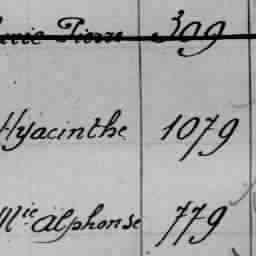 Pierre 399
Hyacinthe 1079
Mie Alphonse 779